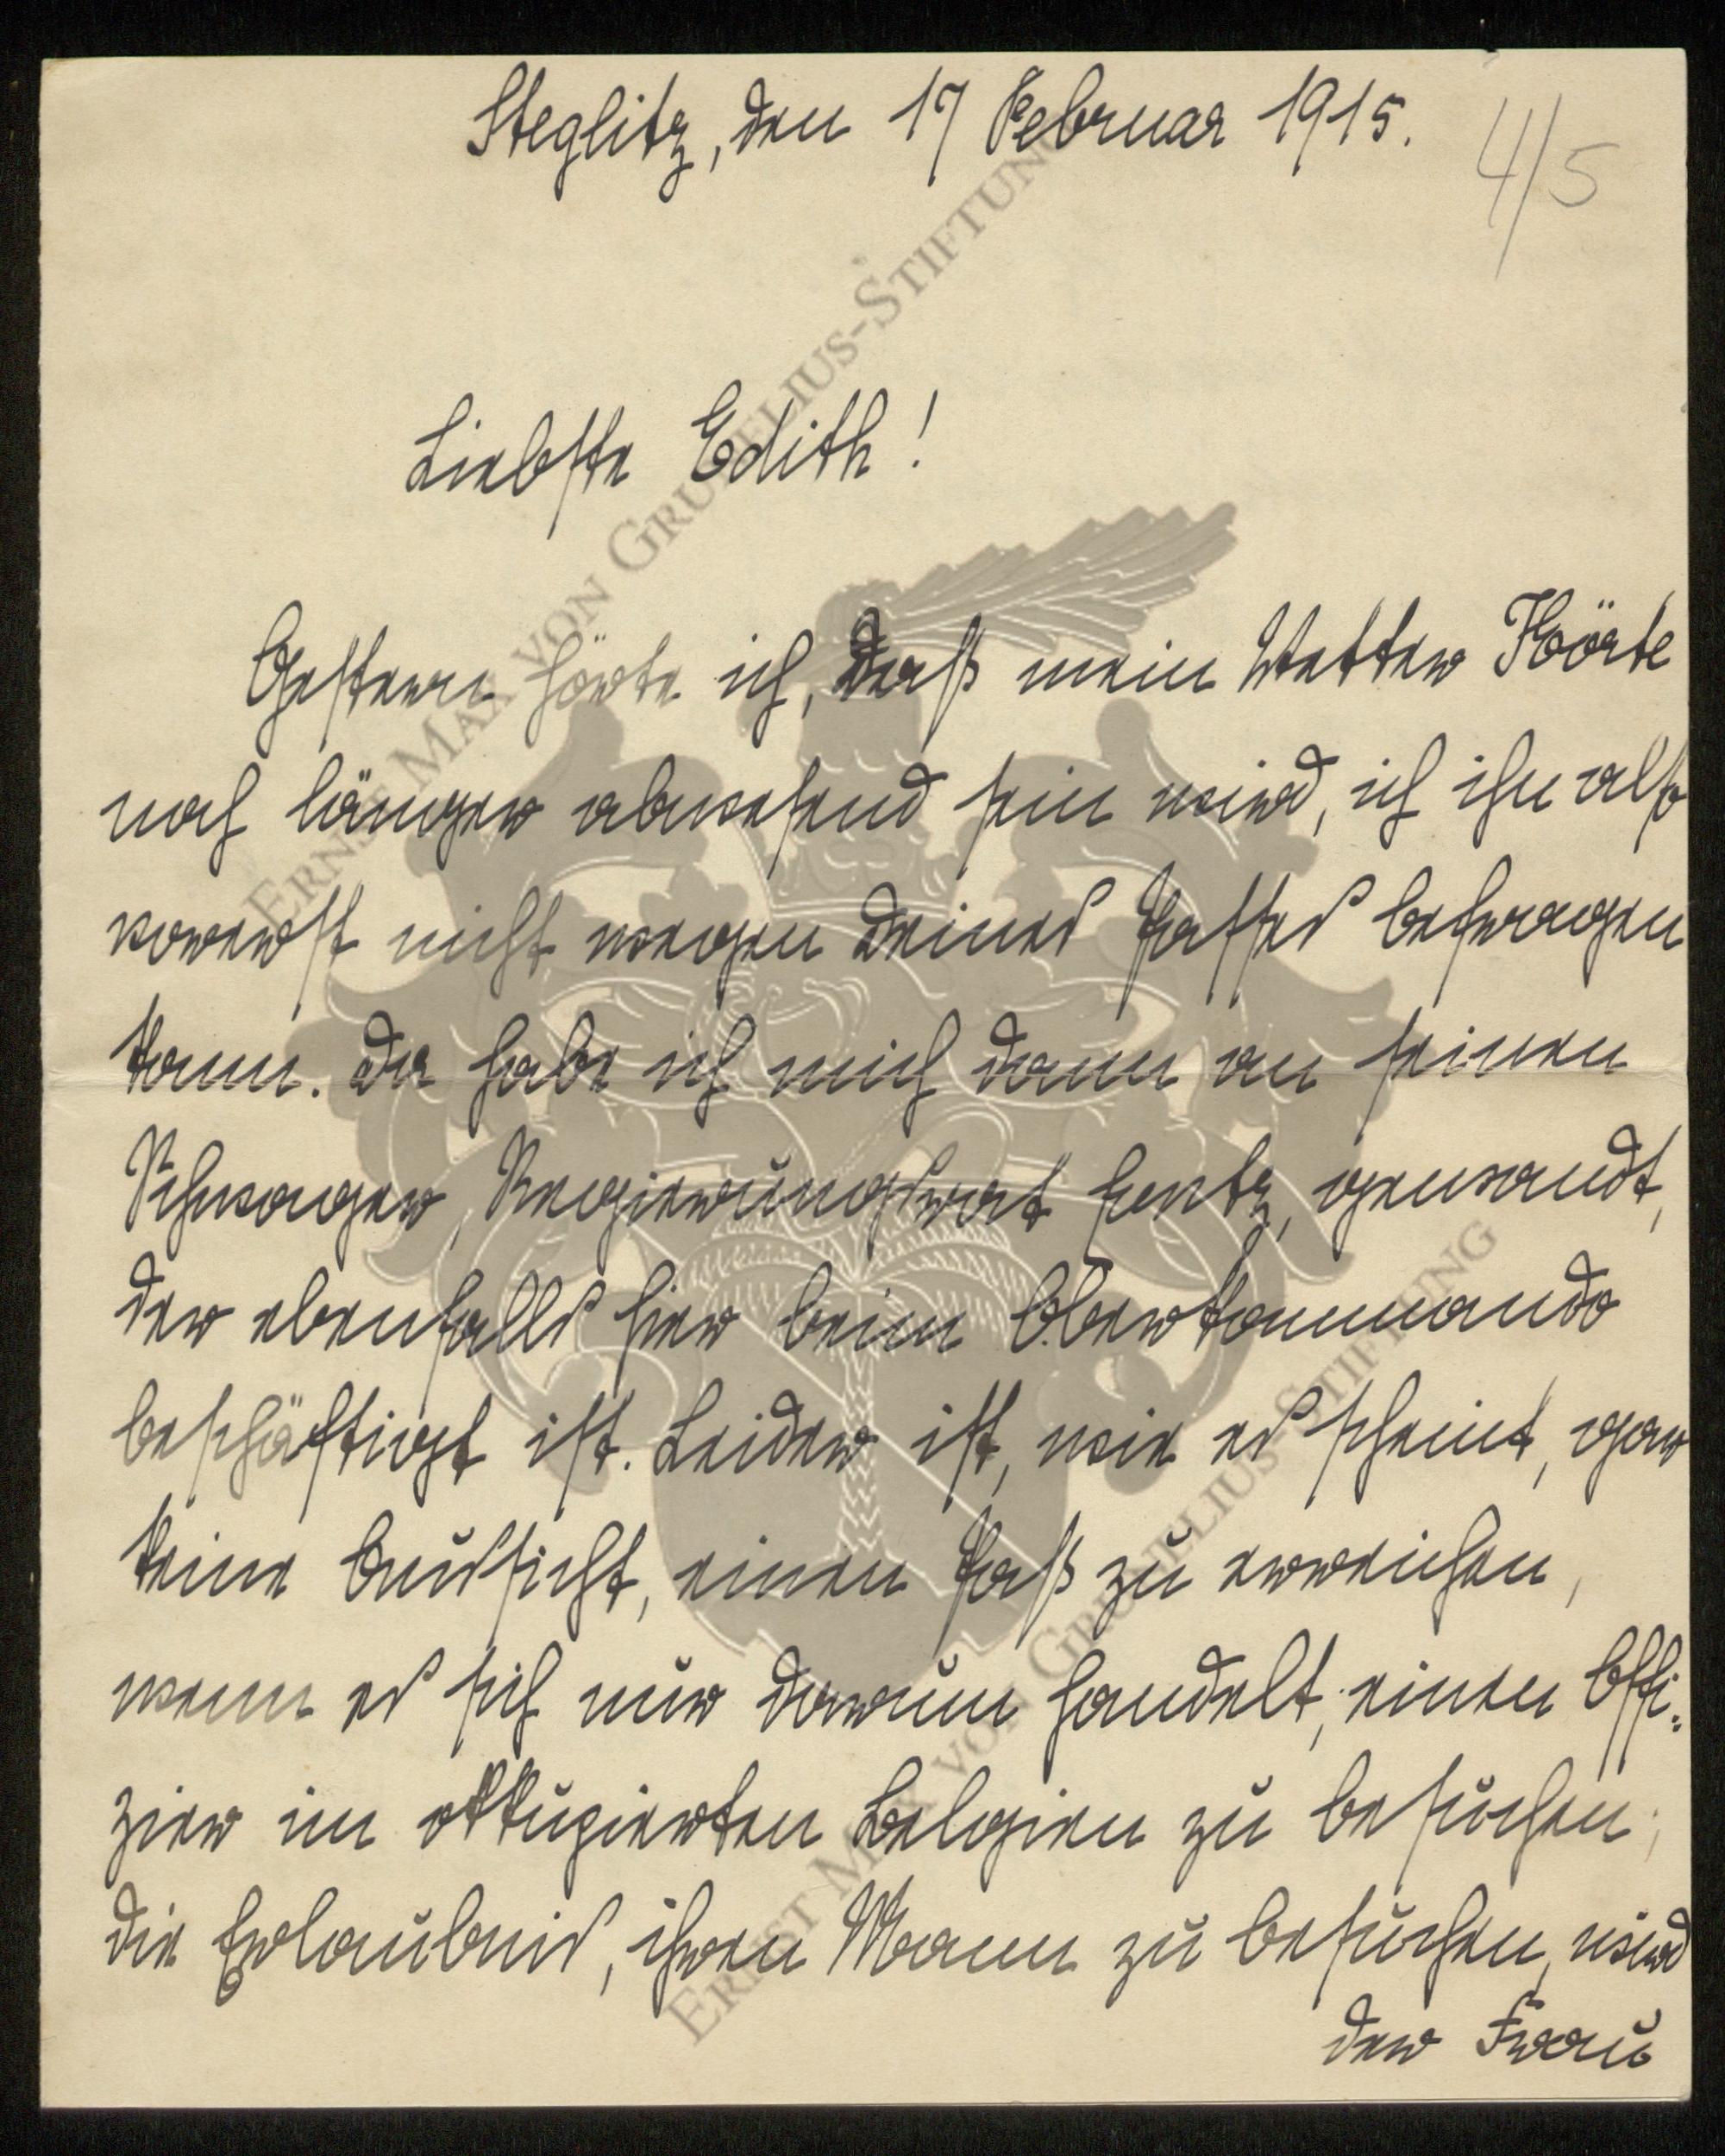 Steglitz, den 17 Februar 1915.
4/5
Liebste Edith!
Gestern hörte ich, daß mein Vetter Körte
noch länger abwesend sein wird, ich ihn also
vorerst nicht wegen Deines Passes befragen
kann. Da habe ich mich dann an seinen
Schwager, Regierungsrat gewandt,
der ebenfalls hier beim Oberkommando
beschäftigt ist. Leider ist, wie es scheint, gar
keine Aussicht, einen Paß zu erreichen,
wenn es sich nur darum handelt, einen Offi-
zier im okkupierten Belgien zu besuchen;
die Erlaubnis, ihren Mann zu besuchen, wird
der Frau
ERNST MAX VON GRUNELIUS-STIFTUNG
ERNST MAX VON GRUNELIUS-STIFTUNG